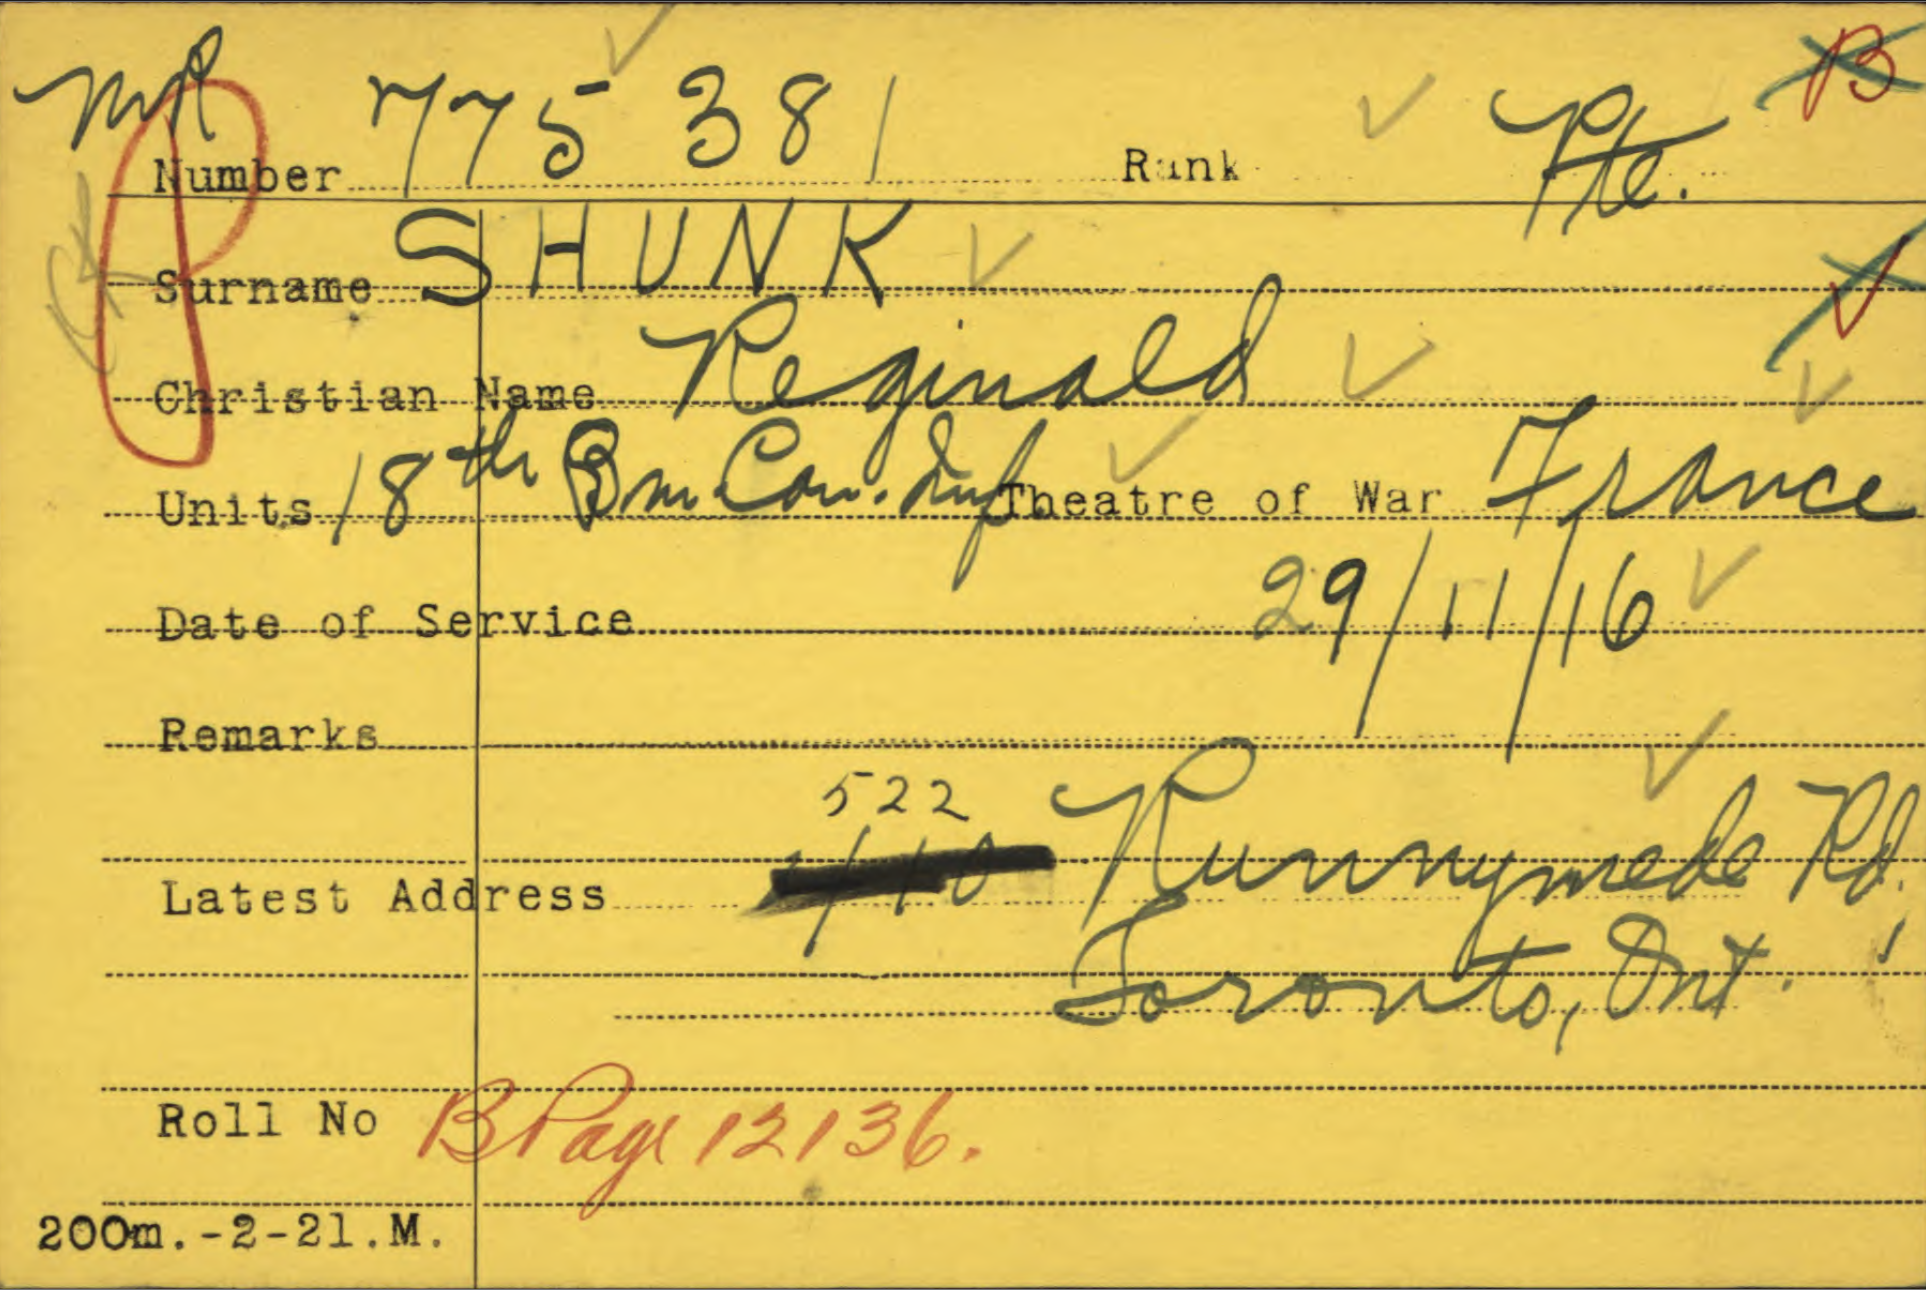 MR
B
Number 775381 Rank Pte.
Surname SHUNK
Christian Name Reginald
Units 18th Bn. Can. Inf Theatre of War France
Date of Service 29/11/16
Remarks
522
Latest Address Runnymede Rd.,
Toronto, Ont.
Roll No B Page 12136.
200m.-2-21.M.